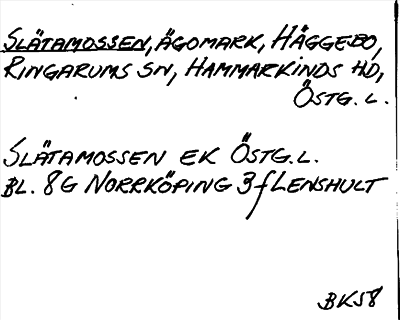 SLÄTAMOSSEN, ÄGOMARK, HÄGGEBO,
RINGARUMS SN, HAMMARKINDS HD,
ÖSTG. L.
SLÄTAMOSSEN EK ÖSTG. L.
BL. 8G NORRKÖPING 3f LENSHULT
BK58